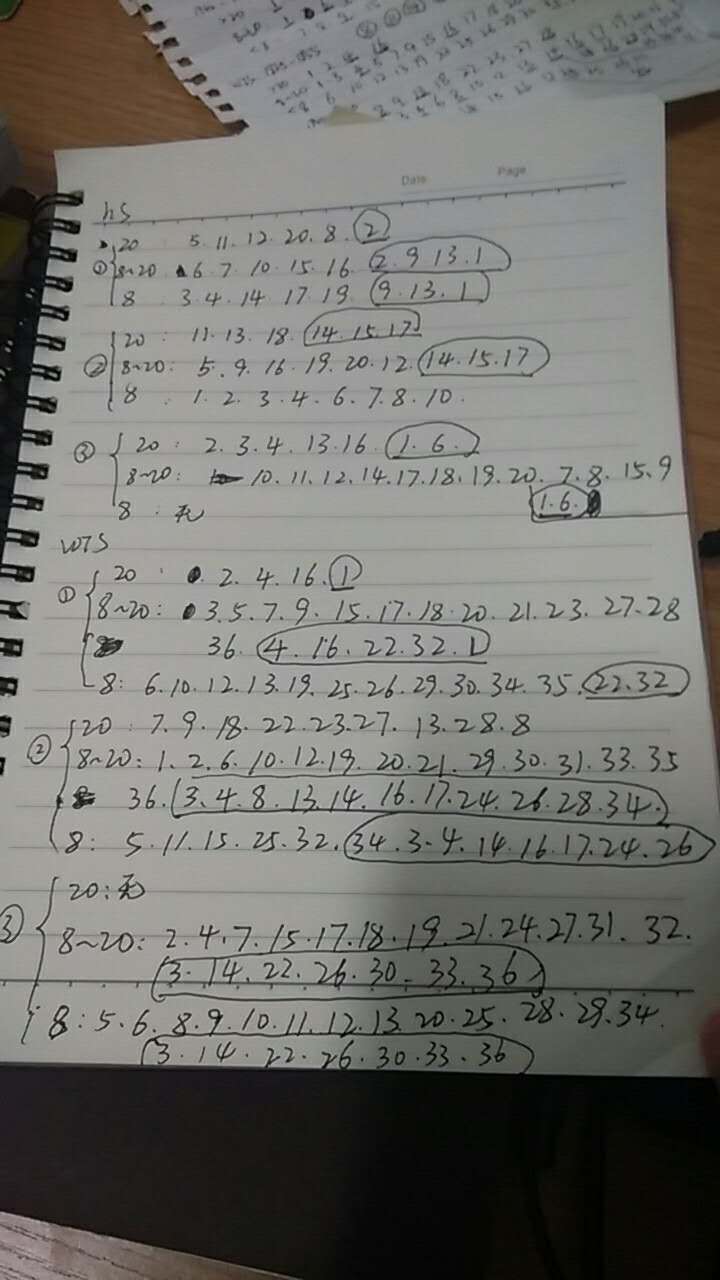 Date Page
hS
20 5.11.12.20.8.2
① 8~20 6.7.10.15.16.2.9.13.1
8 3.4.14.17.19.9.13.1
20: 11.13.18.14.15.17
② 8~20: 5.9.16.19.20.12.14.15.17
8 1.2.3.4.6.7.8.10.
③ 20: 2.3.4.13.16.1.6.
8~20: 10.11.12.14.17.18.19.20.7.8.15.9
1.6.
8: 无
WTS
20 2.4.16.1
① 8~20: 3.5.7.9.15.17.18.20.21.23.27.28
36.4.16.22.32.1
8: 6.10.12.13.19.25.26.29.30.34.35.22.32
20: 7.9.18.22.23.27.13.28.8
② 8~20: 1.2.6.10.12.19.20.21.29.30.31.33.35
36.3.4.8.13.14.16.17.24.26.28.34.
8: 5.11.15.25.32.34.3.4.14.16.17.24.26
20: 无
③ 8~20: 2.4.7.15.17.18.19.21.24.27.31.32.
3.14.22.26.30.33.36
8: 5.6.8.9.10.11.12.13.20.25.28.29.34.
3.14.22.26.30.33.36